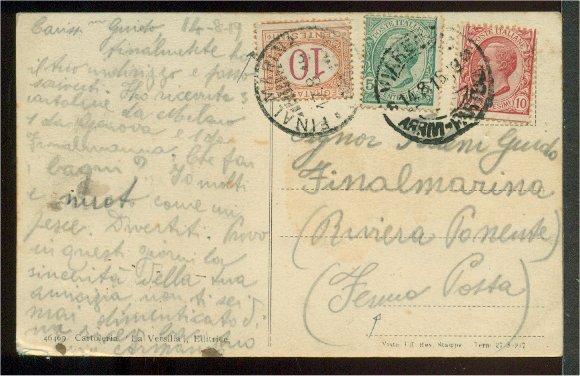 Guido, 14-8-19
finalmente ho
il tuo indirizzo e posso
ricevuto 3
cartoline 1 da Milano
1 da Genova e 1 da
Finalmarina. Che fai
bagni? Io molti
e nuoto come un
pesce. Divertiti. Provo
in questi giorni la
sincerità della tua
amicizia non ti sei
mai dimenticato di
FINALMARINA
CENTESIMI
10
POSTE ITALIANE
5
VIAREGGIO
14.8.19
POSTE ITALIANE
10
Signor Guido
Finalmarina
(Riviera Ponente)
(Fermo Posta)
46469 Cartoleria "La Versilia" Editrice
Visto Uff. Rev. Stampe Tern 27-8-917